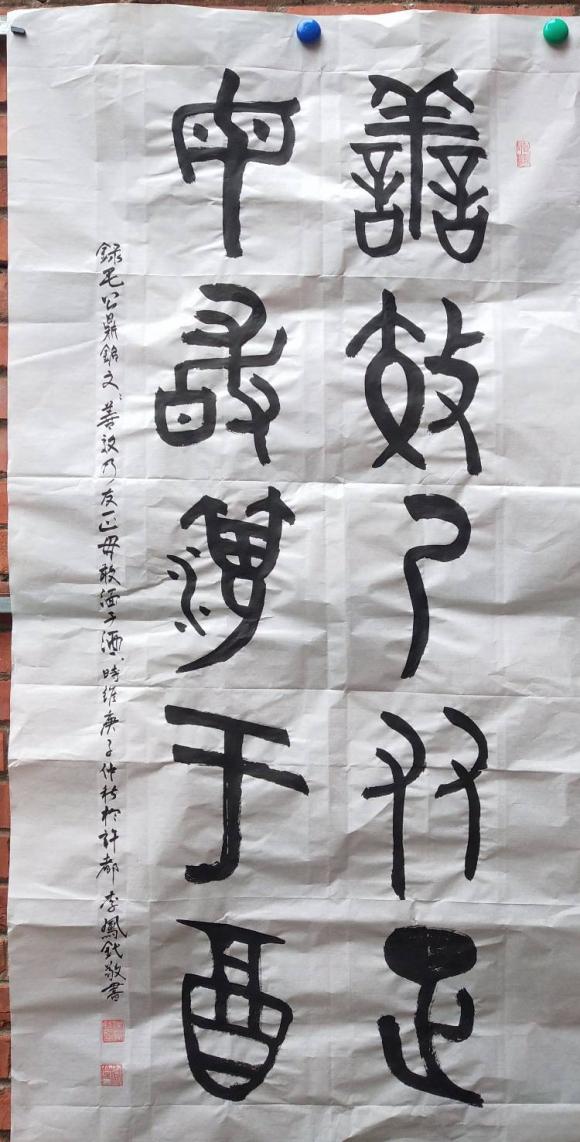 善效乃友正
毋敢湎于酉
錄毛公鼎銘文、善效乃友正毋敢湎于酒、時維庚子仲秋於許都 李鳳敬書